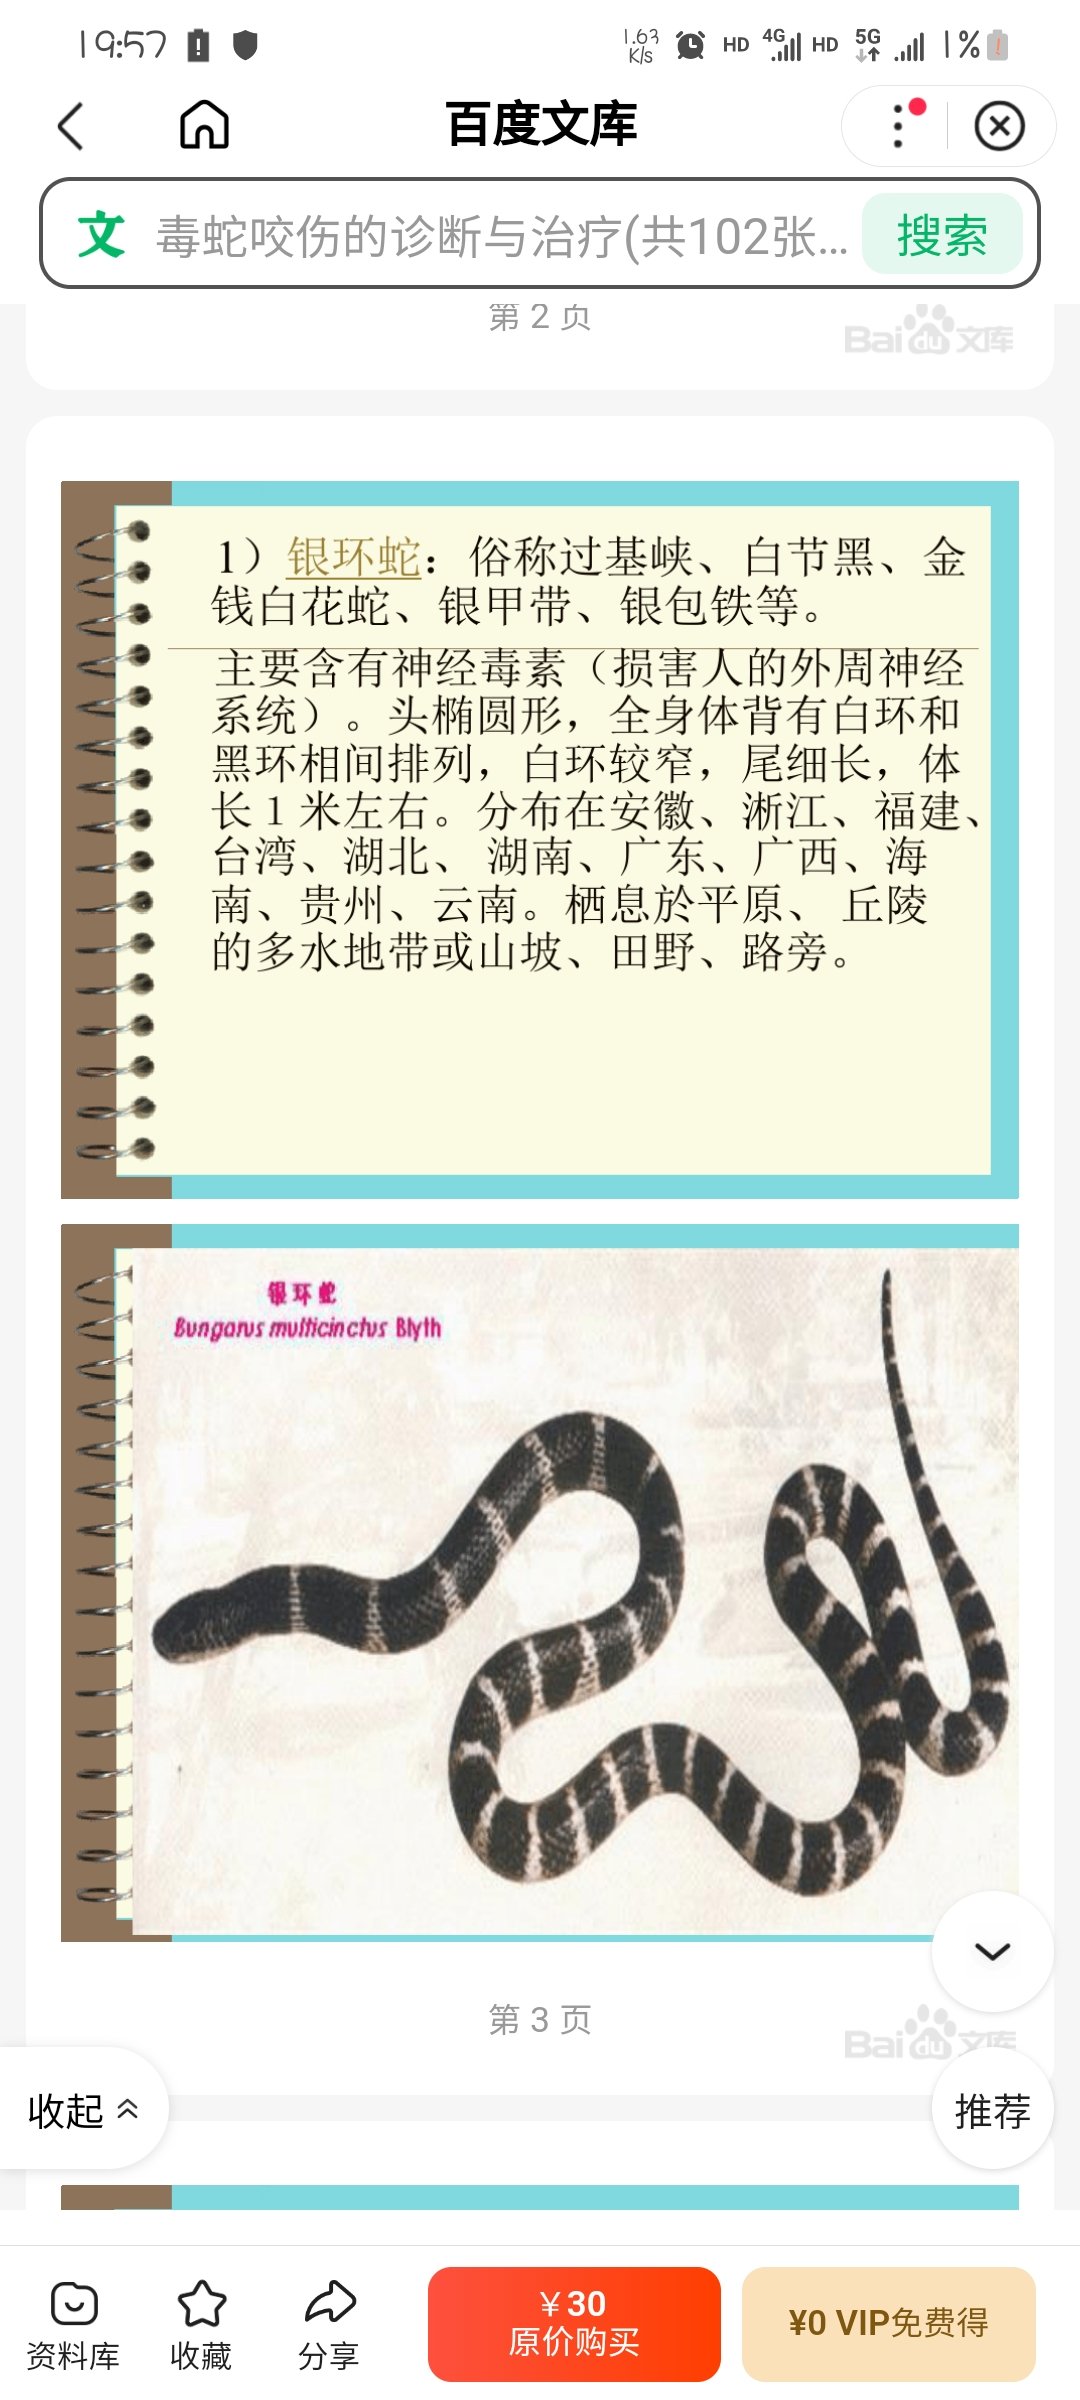 19:57
1.63
K/s
HD
4G
HD
5G
1%
百度文库
文
毒蛇咬伤的诊断与治疗(共102张...
搜索
第 2 页
Bai du 文库
1）银环蛇：俗称过基峡、白节黑、金
钱白花蛇、银甲带、银包铁等。
主要含有神经毒素（损害人的外周神经
系统）。头椭圆形，全身体背有白环和
黑环相间排列，白环较窄，尾细长，体
长１米左右。分布在安徽、淅江、福建、
台湾、湖北、 湖南、广东、广西、海
南、贵州、云南。栖息於平原、 丘陵
的多水地带或山坡、田野、路旁。
银环蛇
Bungarus multicinctus Blyth
第 3 页
Bai du 文库
收起
推荐
资料库
收藏
分享
￥30
原价购买
¥0 VIP免费得